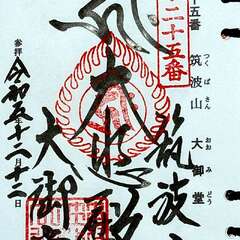 十五番 筑波山 大御堂
つくばさん おおみどう
二十五番
筑波
大悲殿
大御
参拝 令和五年十二月十二日